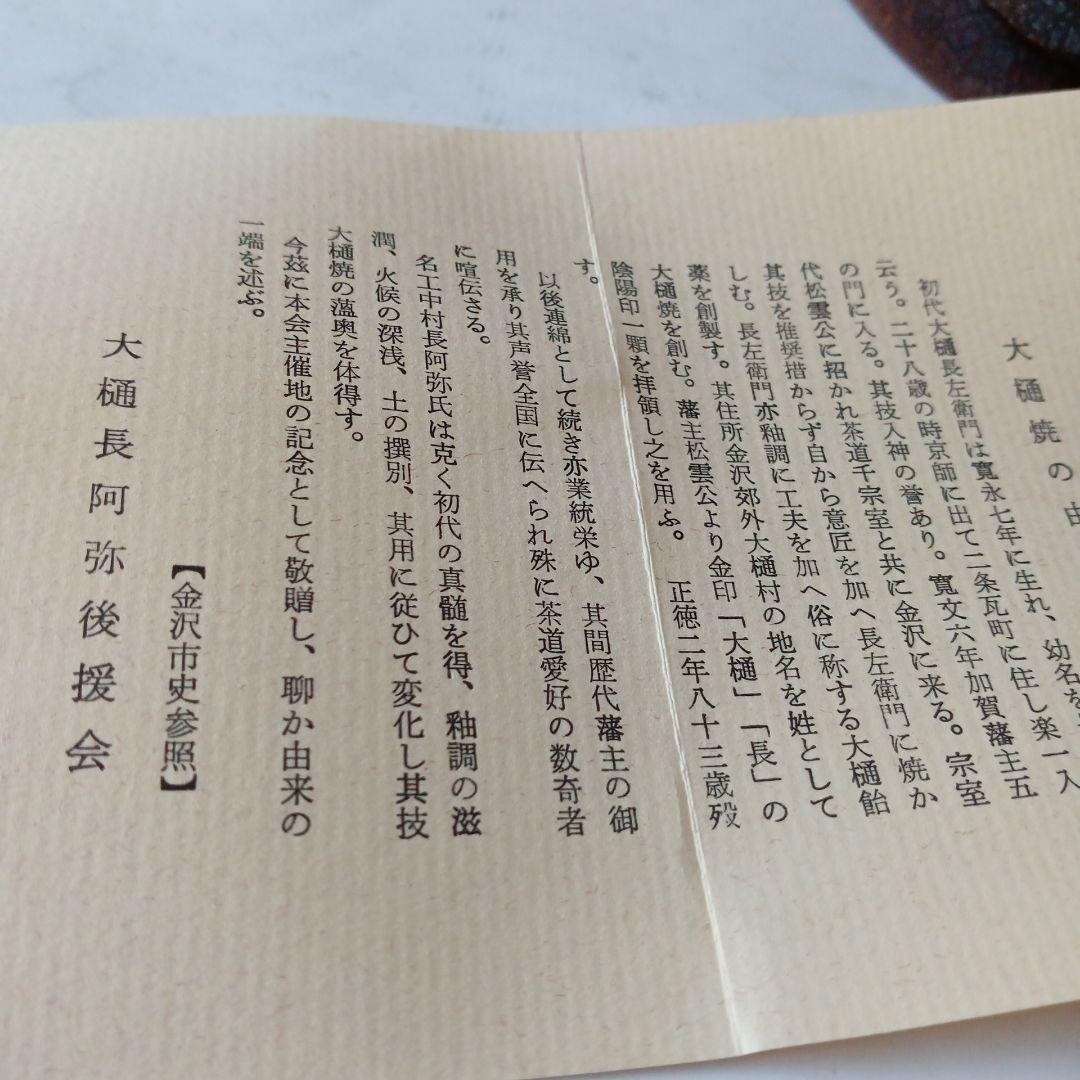 大樋焼の由
初代大樋長左衛門は寛永七年に生れ、幼名を
云う。二十八歳の時京師に出て二条瓦町に住し楽一入
の門に入る。其技入神の誉あり。寛文六年加賀藩主五
代松雲公に招かれ茶道千宗室と共に金沢に来る。宗室
其技を推奨措からず自から意匠を加へ長左衛門に焼か
しむ。長左衛門亦釉調に工夫を加へ俗に称する大樋飴
薬を創製す。其住所金沢郊外大樋村の地名を姓として
大樋焼を創む。藩主松雲公より金印「大樋」「長」の
陰陽印一顆を拝領し之を用ふ。 正徳二年八十三歳歿
す。
以後連綿として続き亦業統栄ゆ、其間歴代藩主の御
用を承り其声誉全国に伝へられ殊に茶道愛好の数奇者
に喧伝さる。
名工中村長阿弥氏は克く初代の真髄を得、釉調の滋
潤、火候の深浅、土の撰別、其用に従ひて変化し其技
大樋焼の薀奥を体得す。
今茲に本会主催地の記念として敬贈し、聊か由来の
一端を述ぶ。
【金沢市史参照】
大樋長阿弥後援会